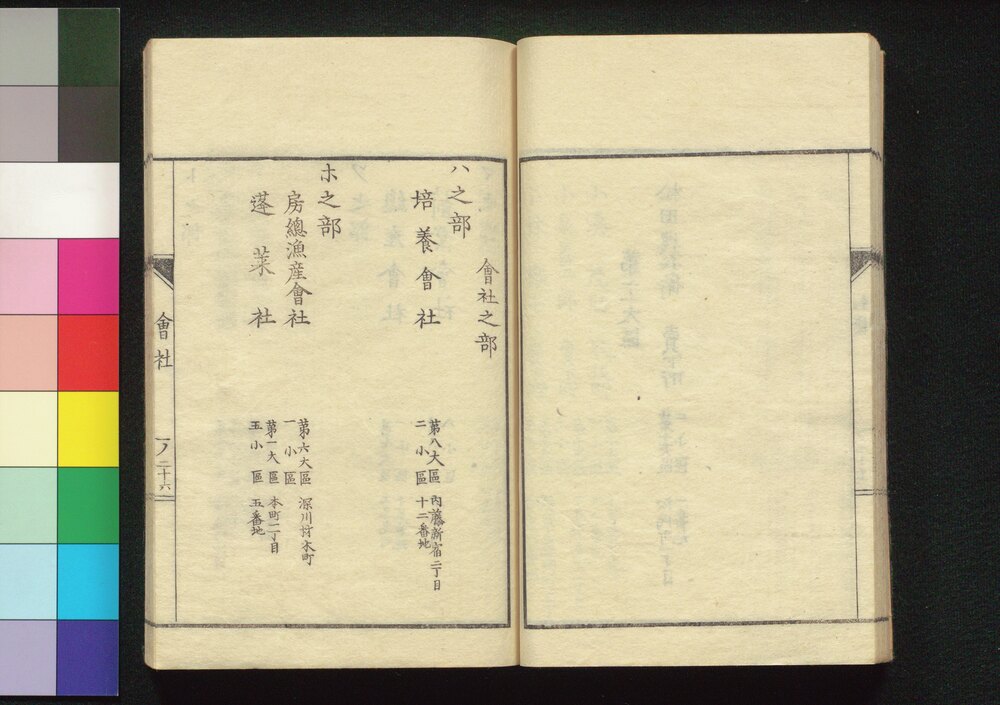 會社之部
ハ之部
培養會社
第八大區
二小區
內藤新宿二丁目
十二番地
ホ之部
房總漁産會社
第六大區
一小區
深川材木町
蓬萊社
第一大區
五小區
本町二丁目
五番地
會社
二十六